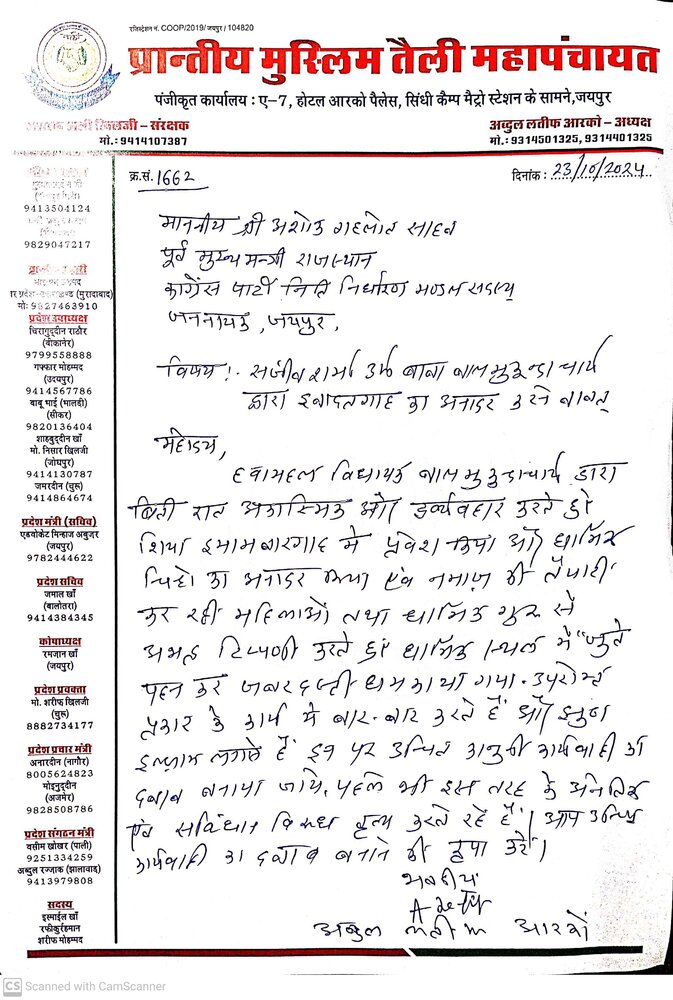 रजिस्ट्रेशन नं. COOP/2019/ जयपुर / 104820
प्रान्तीय मुस्लिम तैली महापंचायत
पंजीकृत कार्यालय : ए-7, होटल आरको पैलेस, सिंधी कैम्प मैट्रो स्टेशन के सामने,जयपुर
अली खिलजी - संरक्षक
मो.:9414107387
अब्दुल लतीफ आरको - अध्यक्ष
मो.: 9314501325, 9314401325
क्र.सं. 1662
दिनांक : 23/10/2024
9413504124
9829047217
प्रदेश-उत्तराखण्ड (मुरादाबाद)
मो: 9827463910
प्रदेश उपाध्यक्ष
चिरागुद्दीन राठौर
(बीकानेर)
9799558888
गफ्फार मोहम्मद
(उदयपुर)
9414567786
बाबू भाई (मालडी)
(सीकर)
9820136404
शाहबुद्दीन खाँ
मो. निसार खिलजी
(जोधपुर)
9414130787
जमरदीन (चुरू)
9414864674
प्रदेश मंत्री (सचिव)
एडवोकेट मिन्हाज अबुजर
(जयपुर)
9782444622
प्रदेश सचिव
जमाल खाँ
(बालोतरा)
9414384345
कोषाध्यक्ष
रमजान खाँ
(जयपुर)
प्रदेश प्रवक्ता
मो. शरीफ खिलजी
(चुरू)
8882734177
प्रदेश प्रचार मंत्री
अनारदीन (नागौर)
8005624823
मोइनुद्दीन
(अजमेर)
9828508786
प्रदेश संगठन मंत्री
वसीम खोखर (पाली)
9251334259
अब्दुल रज्जाक (झालावाड़)
9413979808
सदस्य
इस्माईल खाँ
रफीकुर्रहमान
शरीफ मोहम्मद
माननीय श्री अशोक गहलोत साहब
पूर्व मुख्य मन्त्री राजस्थान
कांग्रेस पार्टी निति निर्धारण मण्डल सदस्य
जननायक, जयपुर,
विषय :- संजीव शर्मा उर्फ बाबा बालमुकुन्दा चार्य
द्वारा इबादतगाह का अनादर करने बाबत्
महोदय,
हवामहल विधायक बालमुकुंदाचार्य द्वारा
बिती रात अकास्मिक और दुर्व्यवहार करते हुये
शिया इमामबारगाह में प्रवेश किया और धार्मिक
चिन्हों का अनादर किया एवं नमाज की तैयारी
कर रही महिलाओं तथा धार्मिक गुरू से
अभद्र टिप्पणी करते हुये धार्मिक स्थल में "जुते
पहन कर जबरदस्ती धमकाया गया. उपरोक्त
प्रकार के कार्य ये बार-बार करते हैं और झुठा
इल्ज़ाम लगाते हैं इन पर उचित कानुनी कार्यवाही का
दबाव बनाया जाये, पहले भी इस तरह के अनैतिक
एवं सविंधान विरूध कृत्य करते रहे हैं। आप उचित
कार्यवाही का दबाव बनाने की कृपा करें।
भवदीय
अब्दुल लतीफ आरको
CS Scanned with CamScanner